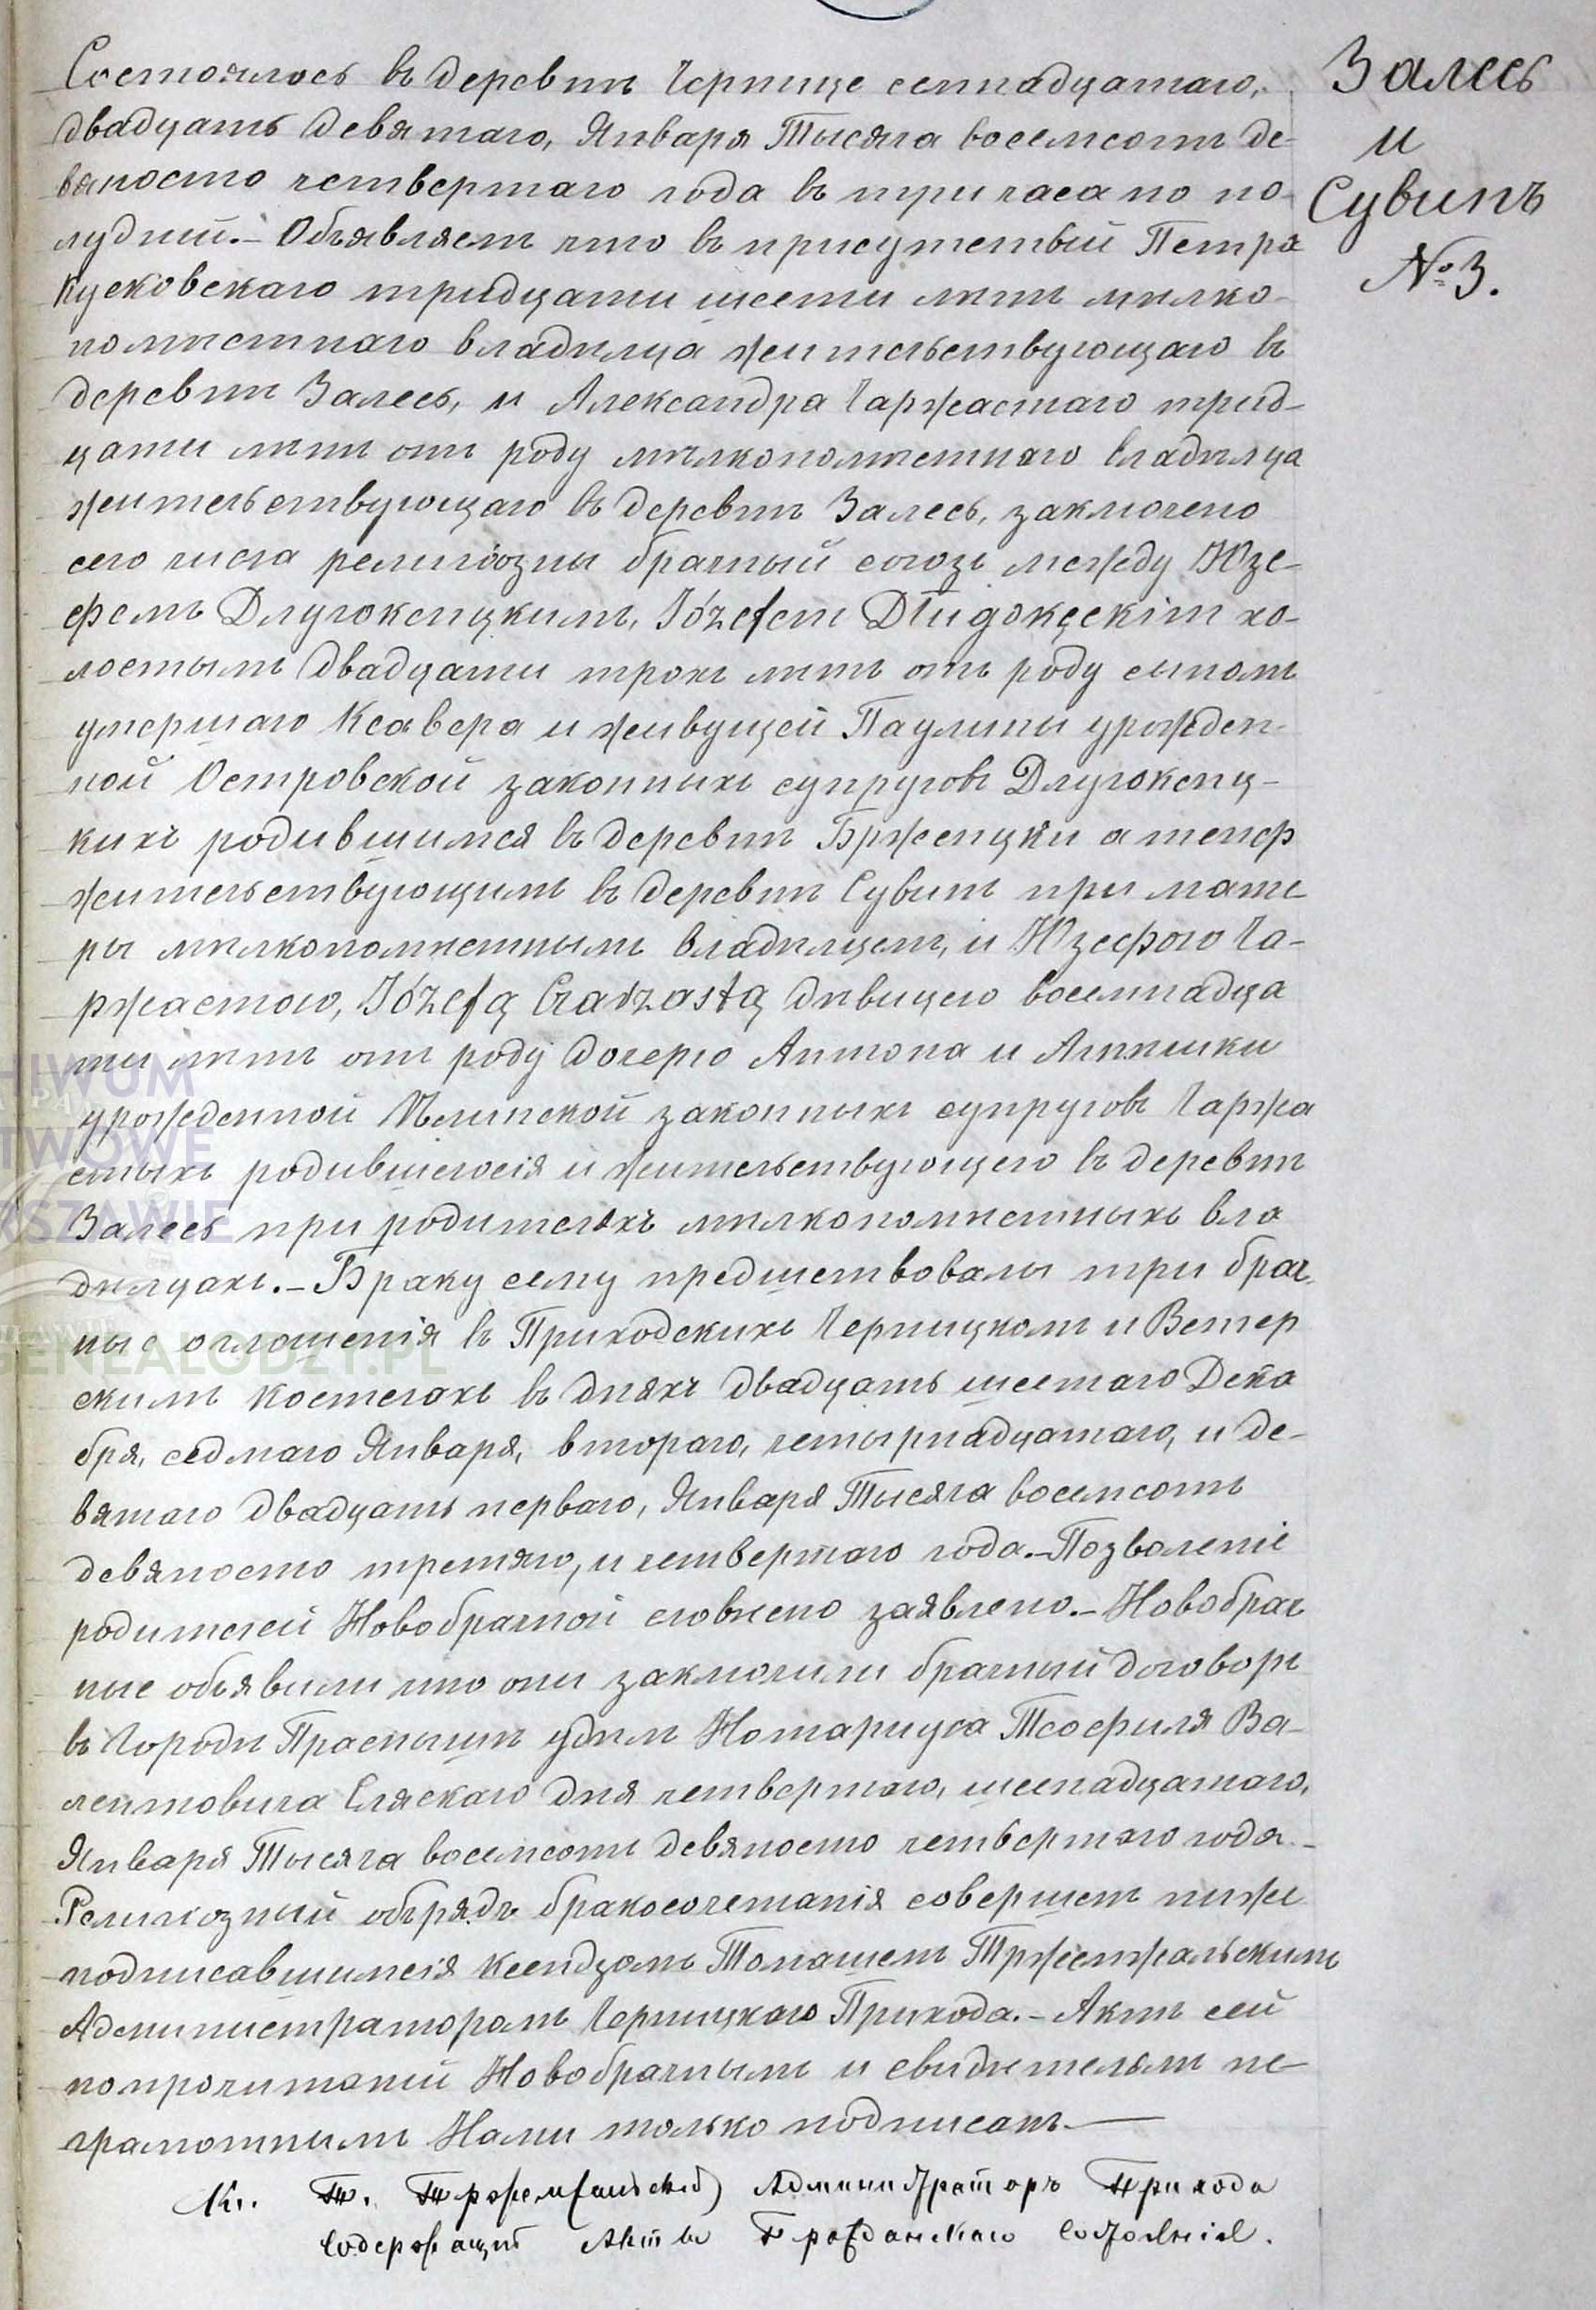 Состоялось въ деревнѣ Чернице семнадцатаго,
двадцать девятаго, Января Тысяча восемсотъ де-
вяносто четвертаго года въ три часа по по-
лудний.- Объявляем что въ присутствый Петра
Кусковскаго тридцати шести лѣтъ мѣлко-
помѣстнаго владѣлца жительствующаго въ
деревнѣ Залесь, и Александра Чаржастаго трид-
цати лѣтъ отъ роду мѣлкопомѣстнаго владѣлца
жительствующаго въ деревнѣ Залесь, заключено
сего числа религіозны брачный союзъ между Юзе-
фемъ Длугокенцкимъ, Józefem Długokęckim хо-
лостымъ двадцати трохъ лѣтъ отъ роду сыномъ
умершаго Ксавера и живущей Паулины урожден-
ной Островской законныхъ супруговъ Длугокенц-
кихъ родившимся въ деревнѣ Брженцки а теперь
жительствующимъ въ деревнѣ Сувинъ при мате
ры мѣлкопомѣстнымъ владѣлцемъ, и Юзефою Ча-
ржастою, Józefą Czarzastą дѣвицею восемнадца
ти лѣтъ отъ роду дочерю Антона и Агнѣшки
урожденной Млинской законныхъ супруговъ Чаржа
стыхъ родившегосія и жительствующего въ деревнѣ
Залесь при родителяхъ мѣлкопомѣстныхъ вла
дѣлцахъ.- Браку сему предшествовалы три брач
ные оглошенія въ Приходскихъ Черницкомъ и Венгер
скимъ костелахъ въ дняхъ двадцать шестаго Дека
бря, седмаго Января, втораго, четырнадцатаго, и де-
вятаго двадцать перваго, Января Тысяча восемсотъ
девяносто третяго, и четвертаго года.- Позволеніе
родителей Новобрачной словесно заявлено.- Новобрач
ные объявили что они заключили брачный договоръ
въ Городѣ Праснышѣ удѣлѣ Нотариуса Теофиля Ва-
лентовича Сляскаго дня четвертаго, шеснадцатаго,
Января Тысяча восемсотъ девяносто четвертаго года.-
Религіозный обрядъ бракосочетанія совершенъ ниже
подписавшимсія Ксендзомъ Томашемъ Тржемжальскимъ
Администраторомъ Черницкаго Прихода.- Актъ сей
по прочитаній Новобрачнымъ и свидѣтелямъ не-
грамотнымъ Нами только подписанъ.—
Кс. Т. Тржемжальскій Администраторъ Прихода
Содержащій Акты Гражданскаго Состоянія.
Залесь
и
Сувинъ
№ 3.
GENEALODZY.PL